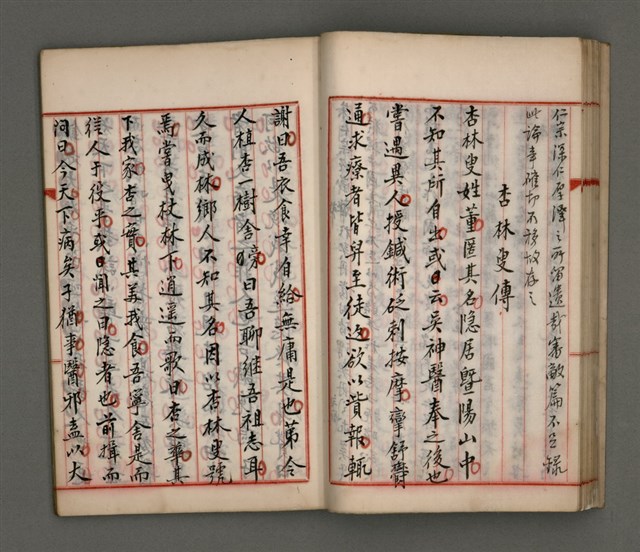 仁宗深仁厚澤之所留遺哉審敵篇不足錄
此論事確切不移故存之
杏林叟傳
杏林叟姓董匿其名隐居暨陽山中
不知其所自出或曰云吴神醫奉之後也
嘗遇異人授鍼術砭刺按摩攣舒
通求療者皆舁至徒返欲以貲報輒
謝曰吾衣食幸自給無庸是也第令
人植杏一樹舍傍曰吾聊继吾祖志耳
久而成林鄉人不知其名因以杏林叟號
焉嘗曳杖林下逍遥而歌曰杏之華其
下我家杏之實其美我食吾寧舍是而
從人于役乎或曰聞之曰隐者也前揖而
问曰今天下病矣子猶事醫邪盍以大